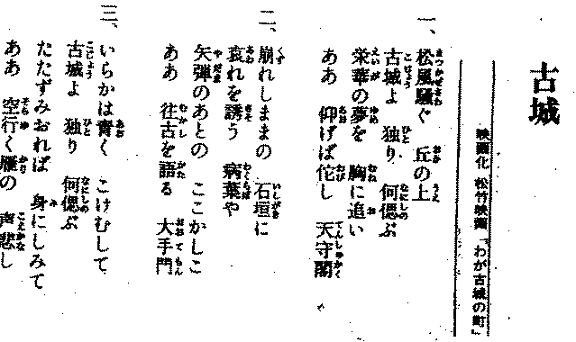 古城
映画化 松竹映画「わが古城の町」
一、松風騒ぐ 丘の上
古城よ 独り 何偲ぶ
栄華の夢を 胸に追い
ああ 仰げば侘し 天守閣
二、崩れしままの 石垣に
哀れを誘う 病葉や
矢弾のあとの ここかしこ
ああ 往古を語る 大手門
三、いらかは青く こけむして
古城よ 独り 何偲ぶ
たたずみおれば 身にしみて
ああ 空行く雁の 声悲し